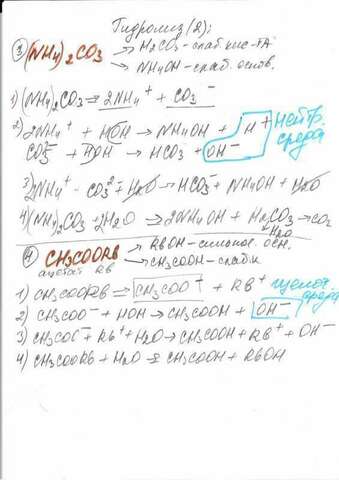 Гидролиз (2):
③ (NH4)2CO3 → H2CO3 - слаб. кис-та
→ NH4OH - слаб. основ.
1) (NH4)2CO3 ⇄ 2NH4⁺ + CO3⁻
2) 2NH4⁺ + HOH → NH4OH + H⁺ нейтр. среда
CO3⁻ + HOH → HCO3 + OH⁻
3) 2NH4⁺ - CO3²⁻ + H2O → HCO3⁻ + NH4OH + H2O
4) (NH4)2CO3 + 2H2O → 2NH4OH + H2CO3 → CO2
H2O
④ CH3COORb → RbOH - сильное осн.
ацетат Rb → CH3COOH - слаб к
1) CH3COORb ⇄ CH3COO⁻ + Rb⁺ щелоч. среда
2) CH3COO⁻ + HOH → CH3COOH + OH⁻
3) CH3COO⁻ + Rb⁺ + H2O → CH3COOH + Rb⁺ + OH⁻
4) CH3COORb + H2O ⇄ CH3COOH + RbOH